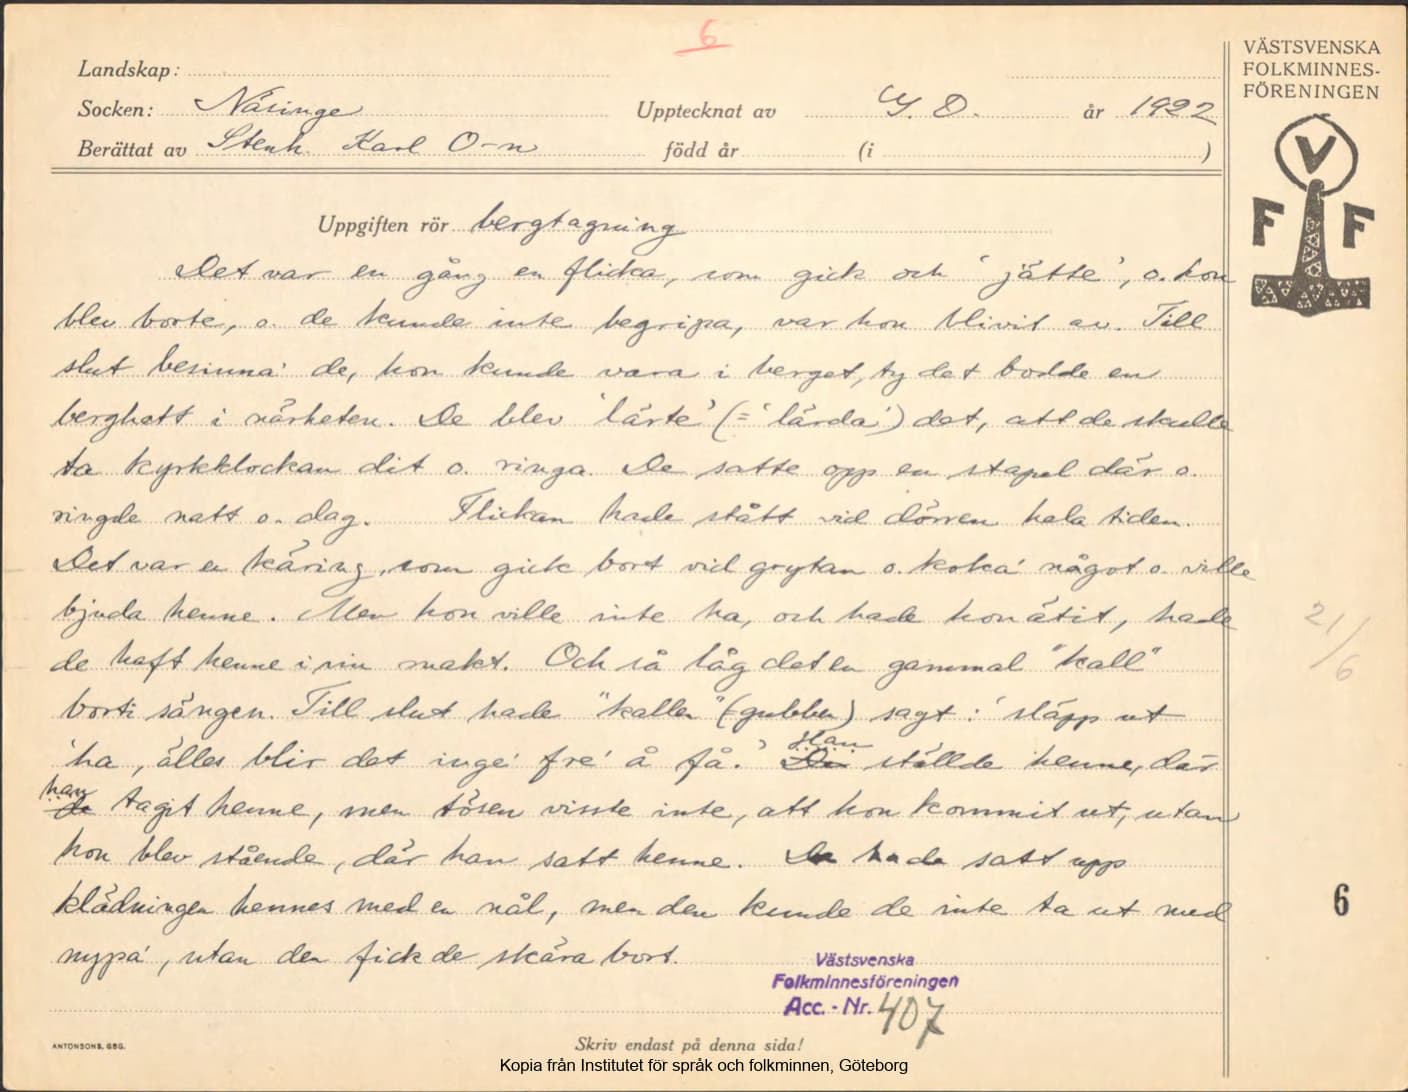 6
Landskap:
Socken: Näsinge Upptecknat av Y. D. år 1922
Berättat av Stenh. Karl O-n född år (i )
VÄSTSVENSKA
FOLKMINNES-
FÖRENINGEN
V
F F
Uppgiften rör bergtagning
Det var en gång en flicka, som gick och 'jätte', o. hon
blev borte, o. de kunde inte begripa, var hon blivit av. Till
slut besinna' de, hon kunde vara i berget, ty det bodde en
berghatt i närheten. De blev 'lärte' (= 'lärda') det, att de skulle
ta kyrkklockan dit o. ringa. De satte opp en stapel där o.
ringde natt o. dag. Flickan hade stått vid dörren hela tiden.
Det var en käring, som gick bort vid grytan o. koka' något o. ville
bjuda henne. Men hon ville inte ha, och hade hon ätit, hade
de haft henne i sin makt. Och så låg det en gammal "kall"
borti sängen. Till slut hade "kallen" (= gubben) sagt: 'släpp ut
'ha, älles blir det inge' fre' å få.' Han ställde henne, där
han tagit henne, men tösen visste inte, att hon kommit ut, utan
hon blev stående, där han satt henne. De hade satt upp
klädningen hennes med en nål, men den kunde de inte ta ut med
nypa', utan den fick de skära bort.
21/6
6
Västsvenska
Folkminnesföreningen
Acc. - Nr. 407
ANTONSONS, GBG.
Skriv endast på denna sida!
Kopia från Institutet för språk och folkminnen, Göteborg